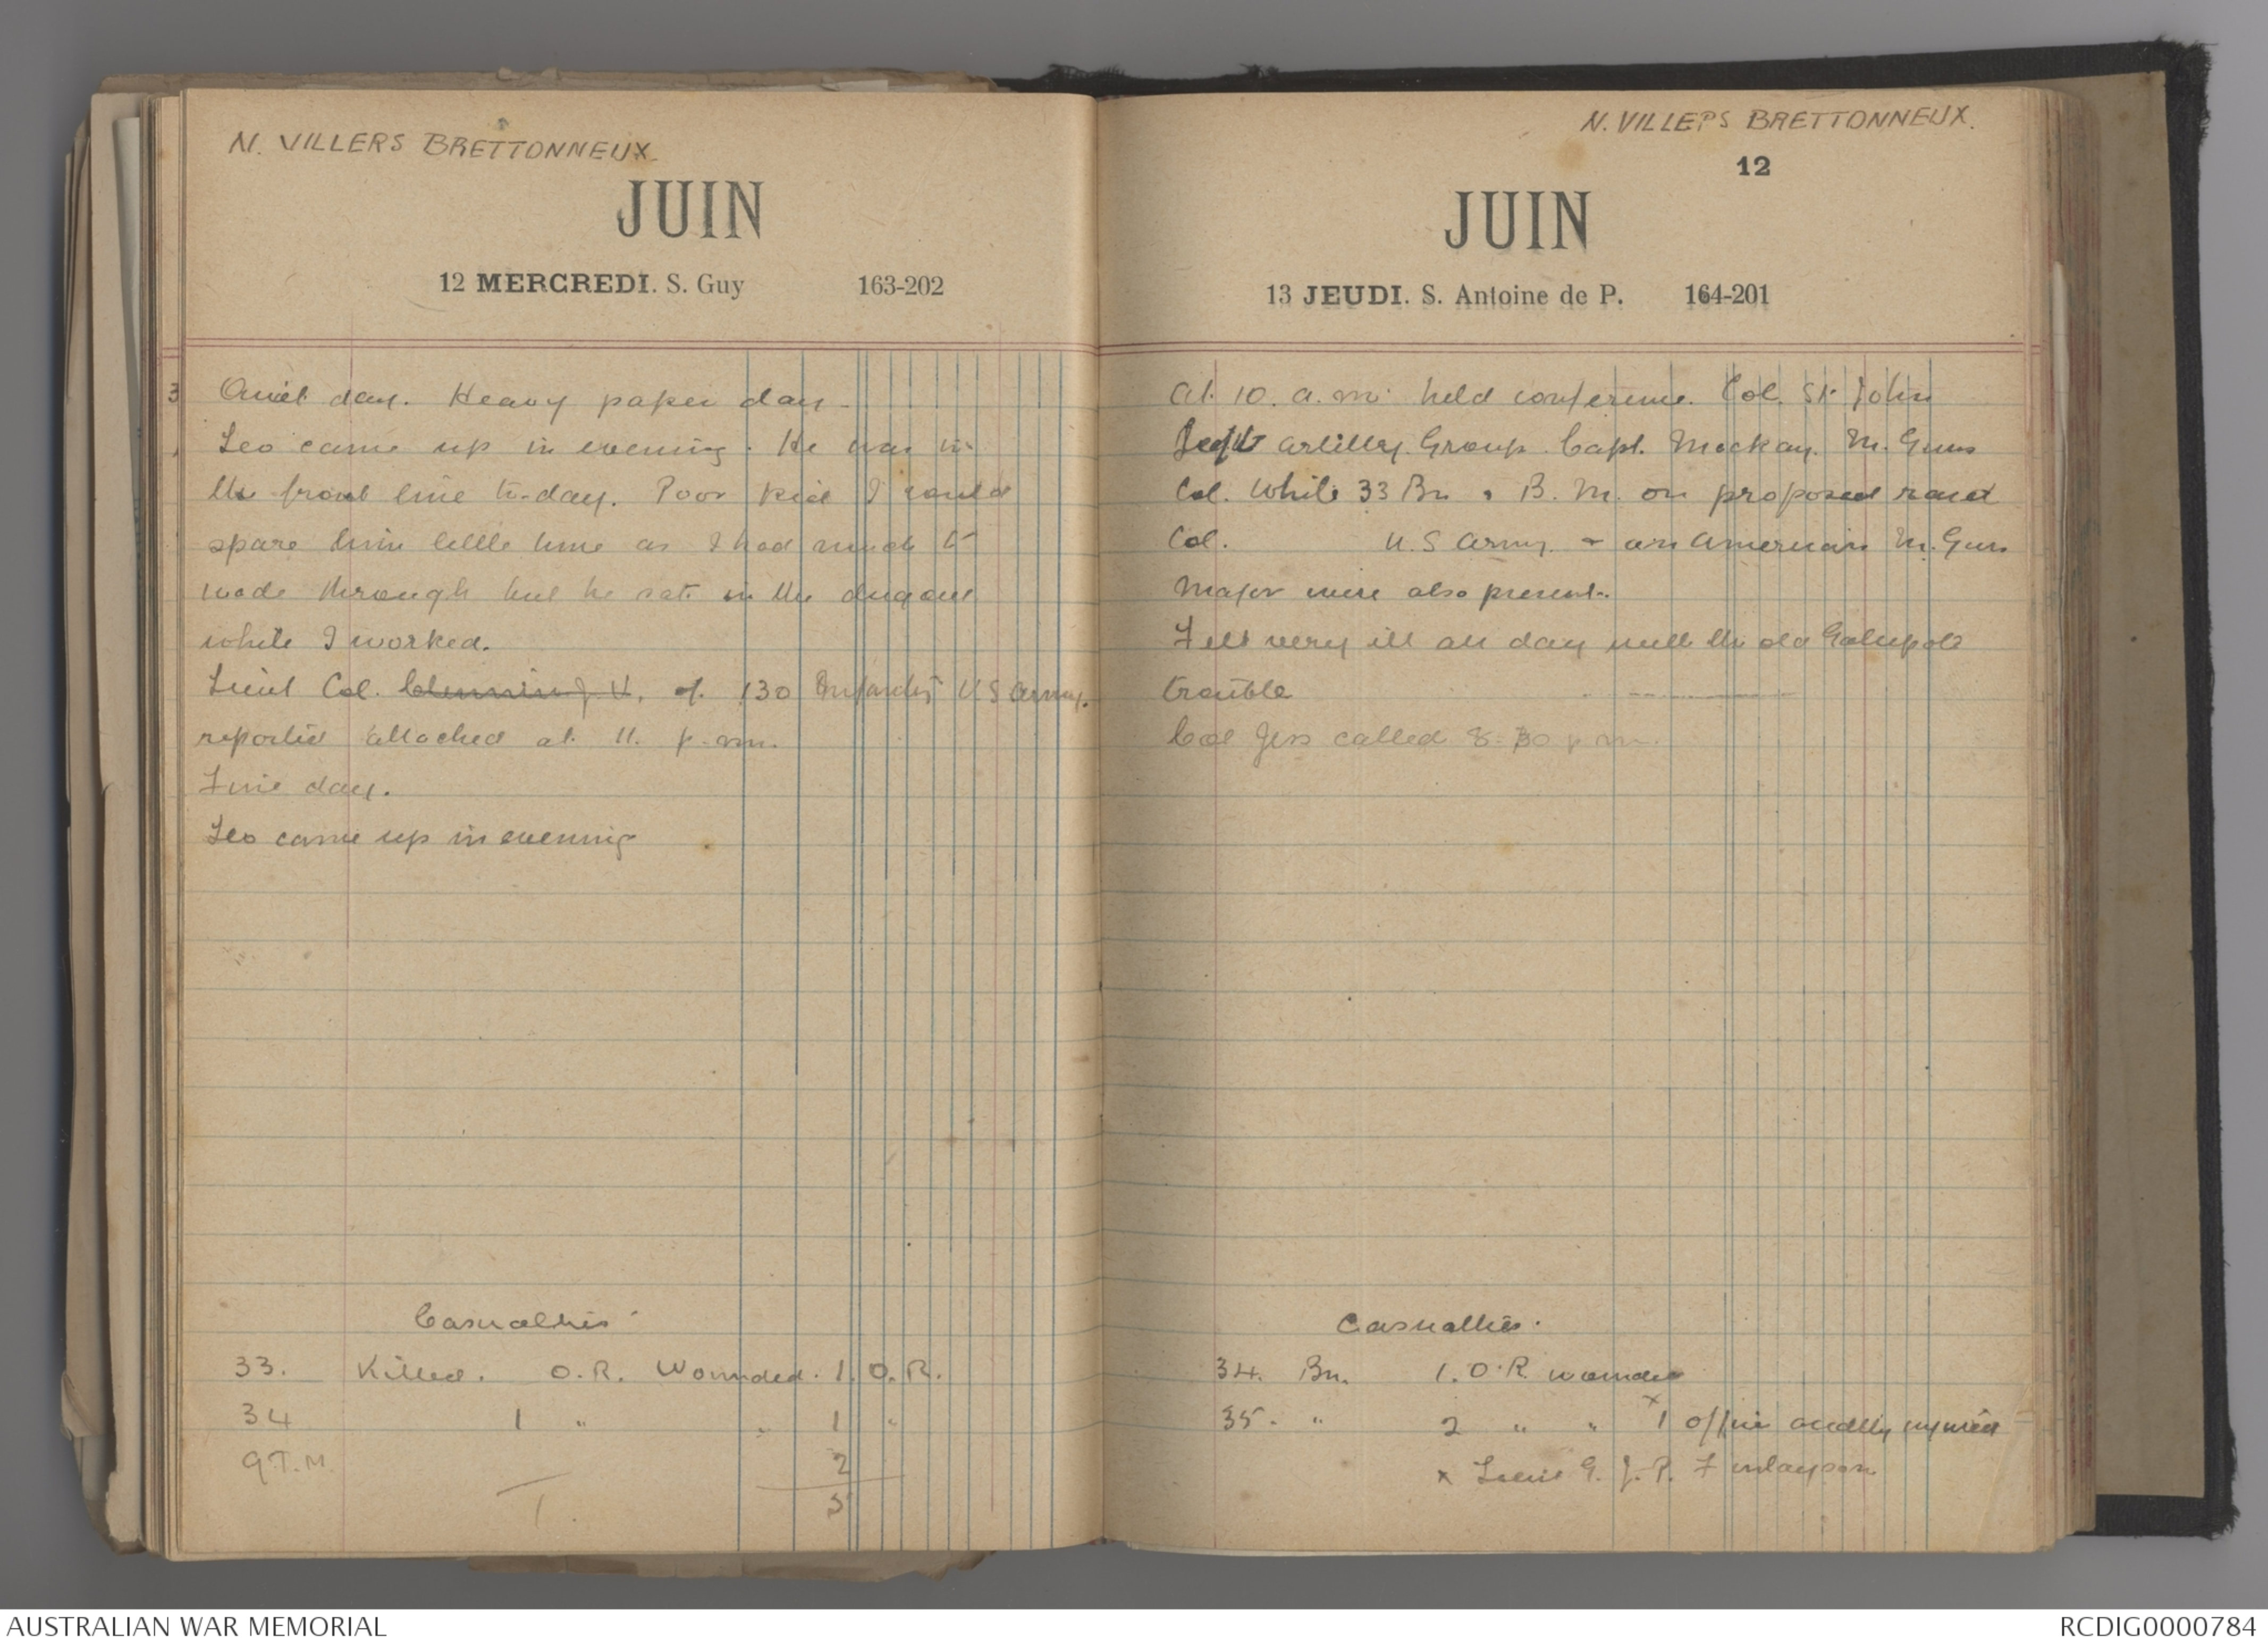 N. VILLERS BRETTONNEUX.
JUIN
12 MERCREDI. S. Guy 163-202
3
Quiet day. Heavy paper day.
Leo came up in evening. He was in
the front line to-day. Poor kid I could
spare him little time as I had much to
wade through but he sat in the dugout
while I worked.
Lieut Col. of 130 Infantry U S Army.
reported attached at 11. p.m.
Fine day.
Leo came up in evening
Casualties
33. Killed. O.R. Wounded. 1. O.R.
34 1 " " 1 "
9 T.M. 2
1. 3
N. VILLERS BRETTONNEUX.
12
JUIN
13 JEUDI. S. Antoine de P. 164-201
At 10. a.m. held conference. Col. St. John
Artillery Group. Capt. Mackay. M. Guns
Col. White 33 Bn. B. M. on proposed raid
Col. U.S Army. & an American M. Gun
Major were also present.
Felt very ill all day with the old Gallipoli
trouble
Col Jess called 8.30 p.m.
Casualties.
34. Bn. 1. O.R. wounded
35. " 2 " " x 1 officer accdtly injured
x Lieut G. J. P. Finlayson
AUSTRALIAN WAR MEMORIAL
RCDIG0000784